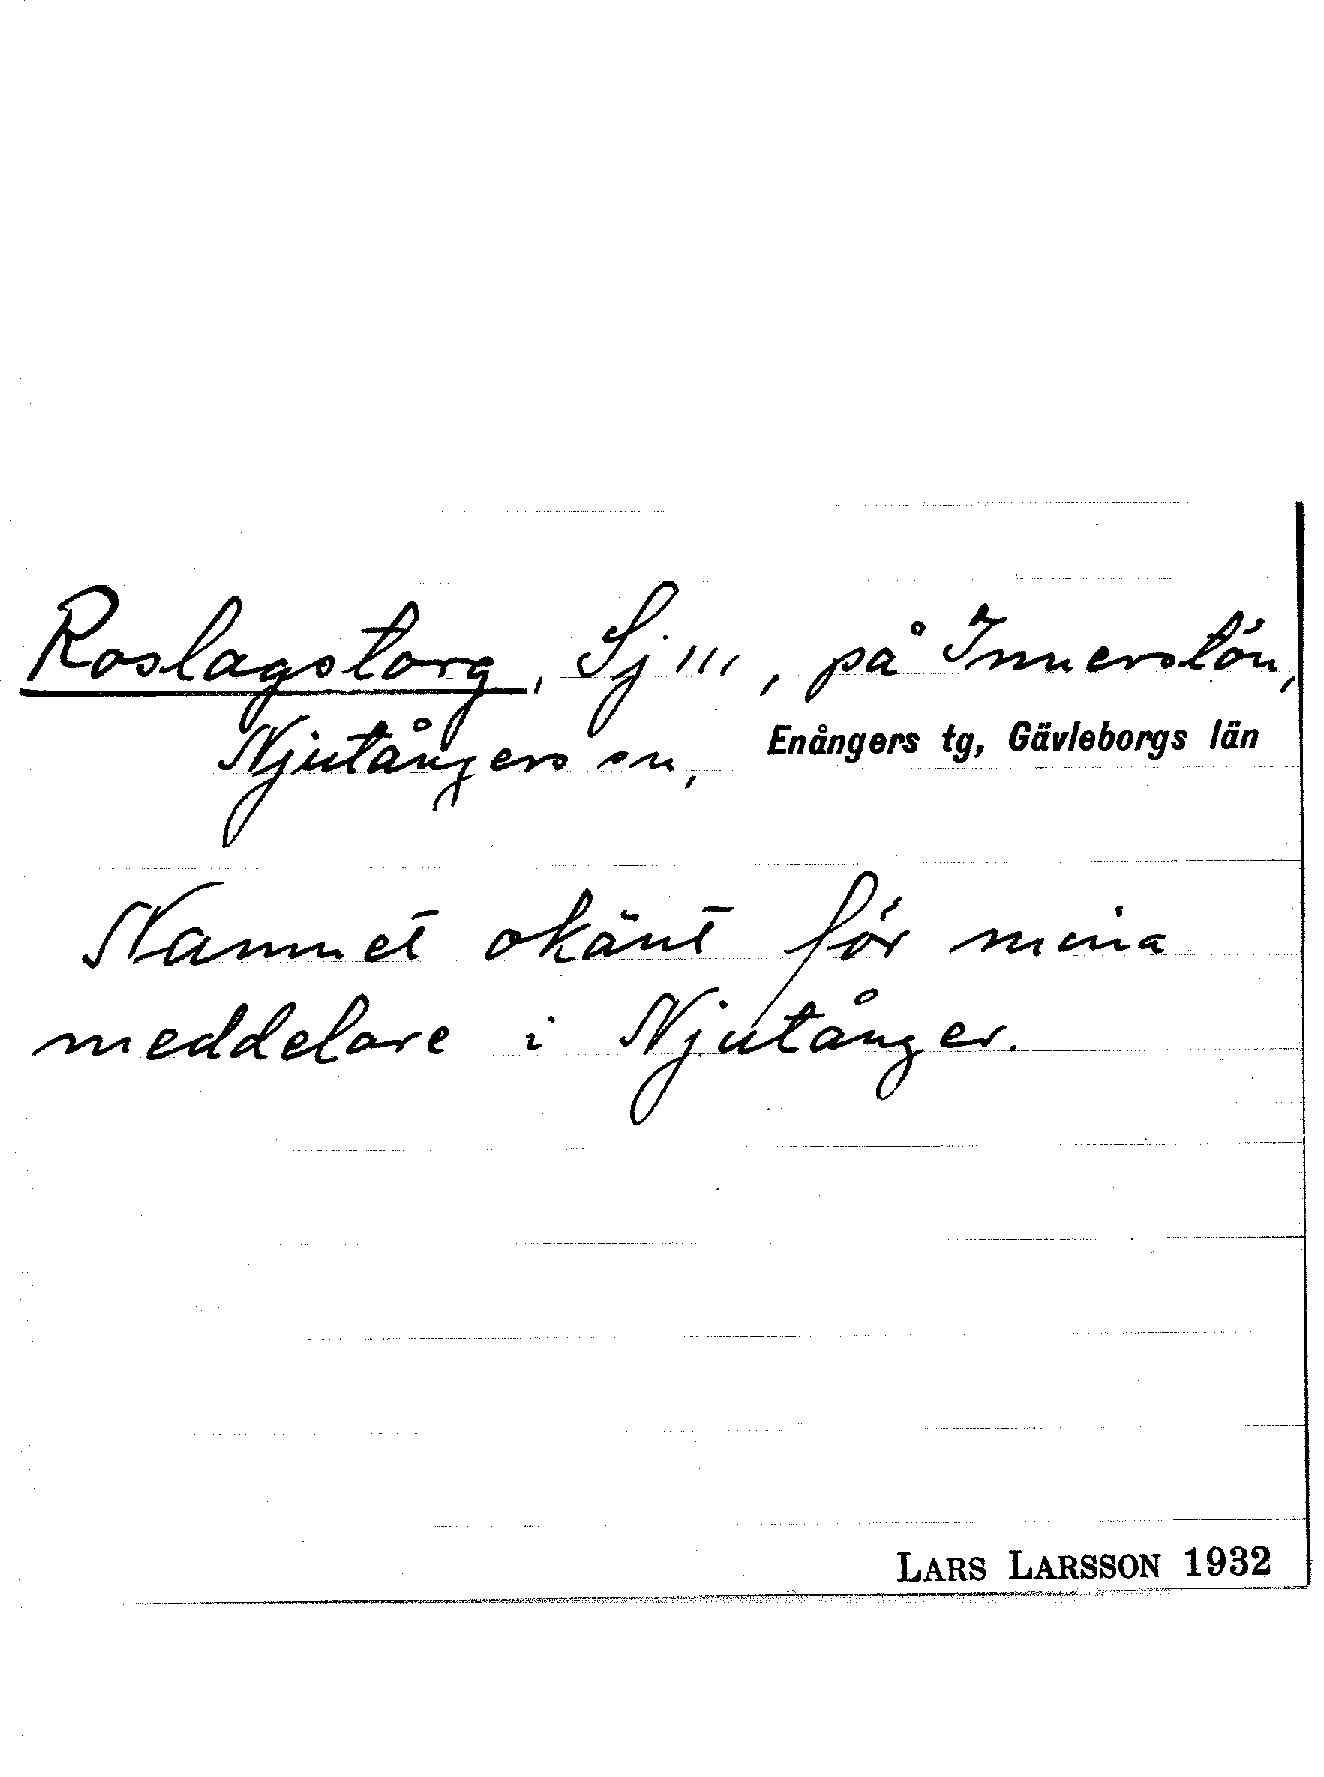 Roslagstorg, Sj III, på Innerstön,
Njutångers sn, Enångers tg, Gävleborgs län
Namnet okänt för mina
meddelare i Njutånger.
LARS LARSSON 1932